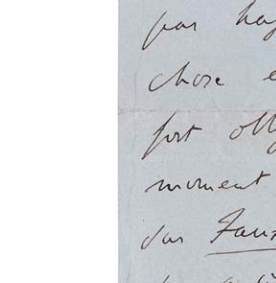 par ha
chose e
fort obl
moment
sur Faus